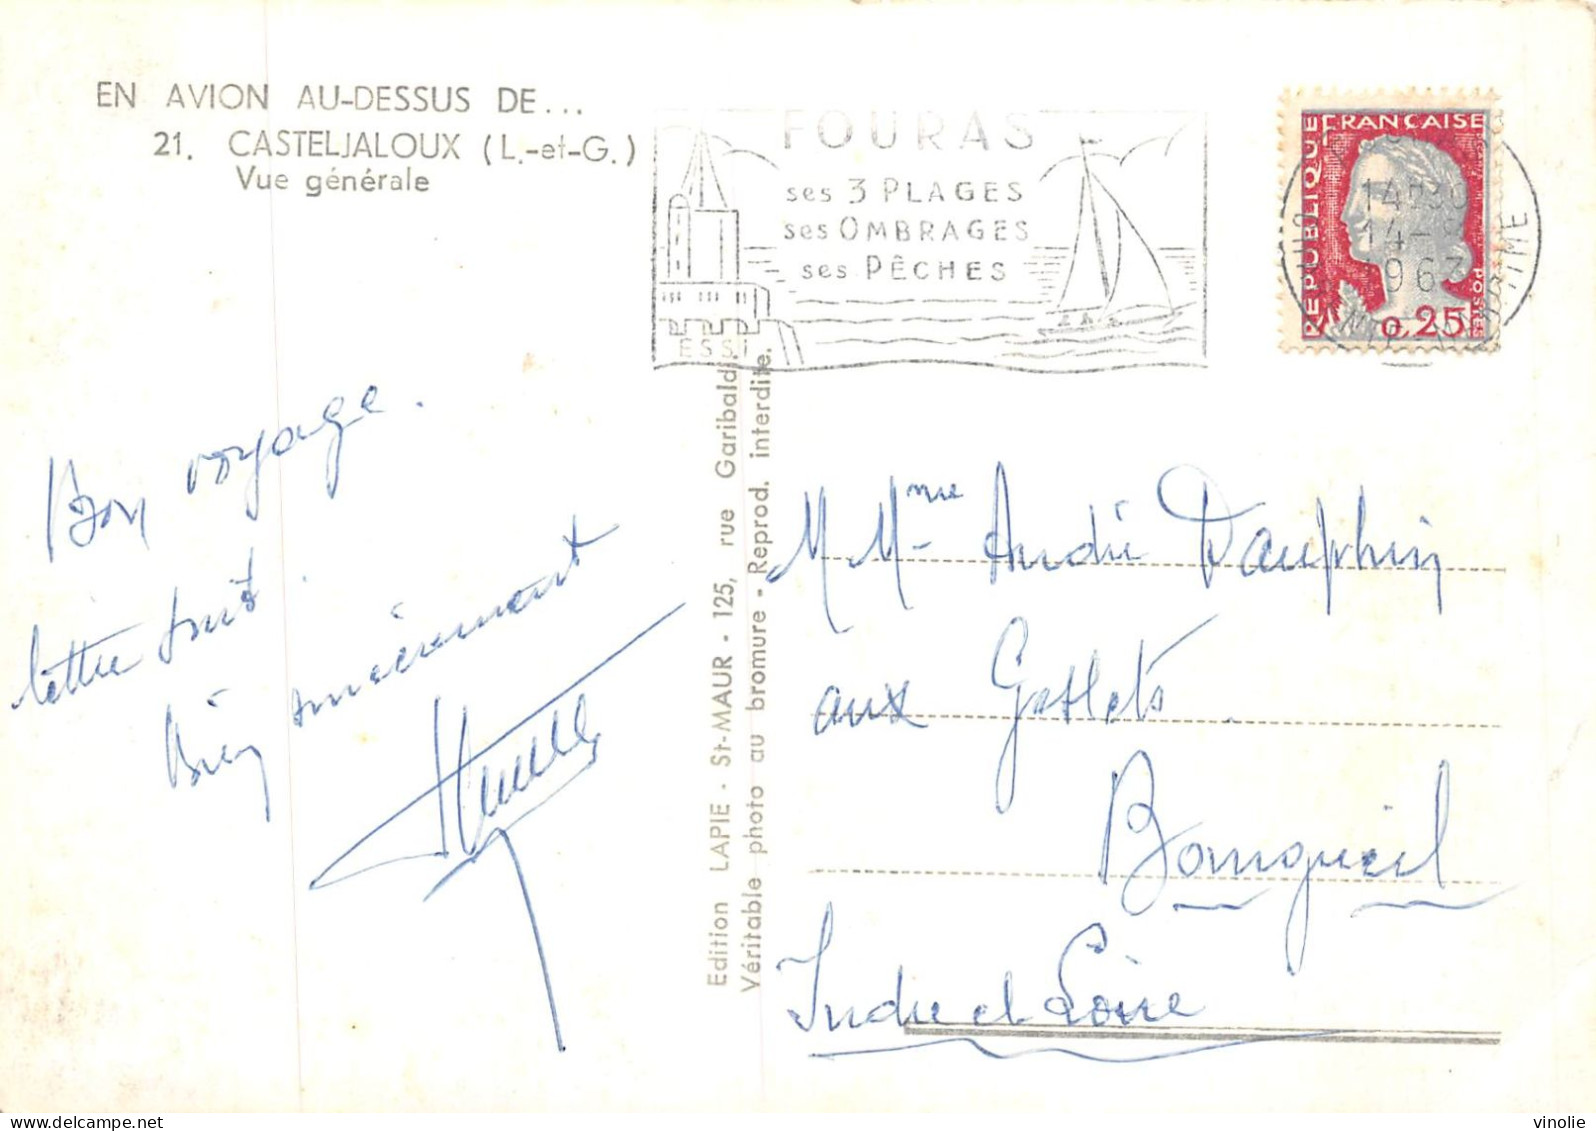 EN AVION AU-DESSUS DE...
21. CASTELJALOUX (L.-et-G.)
Vue générale
FOURAS
ses 3 PLAGES
ses OMBRAGES
ses PÊCHES
REPUBLIQUE
FRANÇAISE
POSTES
0,25
14H30
14-8
1963
Bon voyage.
lettre suit.
Bien sincèrement
Edition LAPIE - St-MAUR - 125, rue Garibaldi.
Véritable photo au bromure - Reprod. interdite.
M Mme André Dauphin
aux
Bourgueil
Indre et Loire
vinolie | delcampe.net